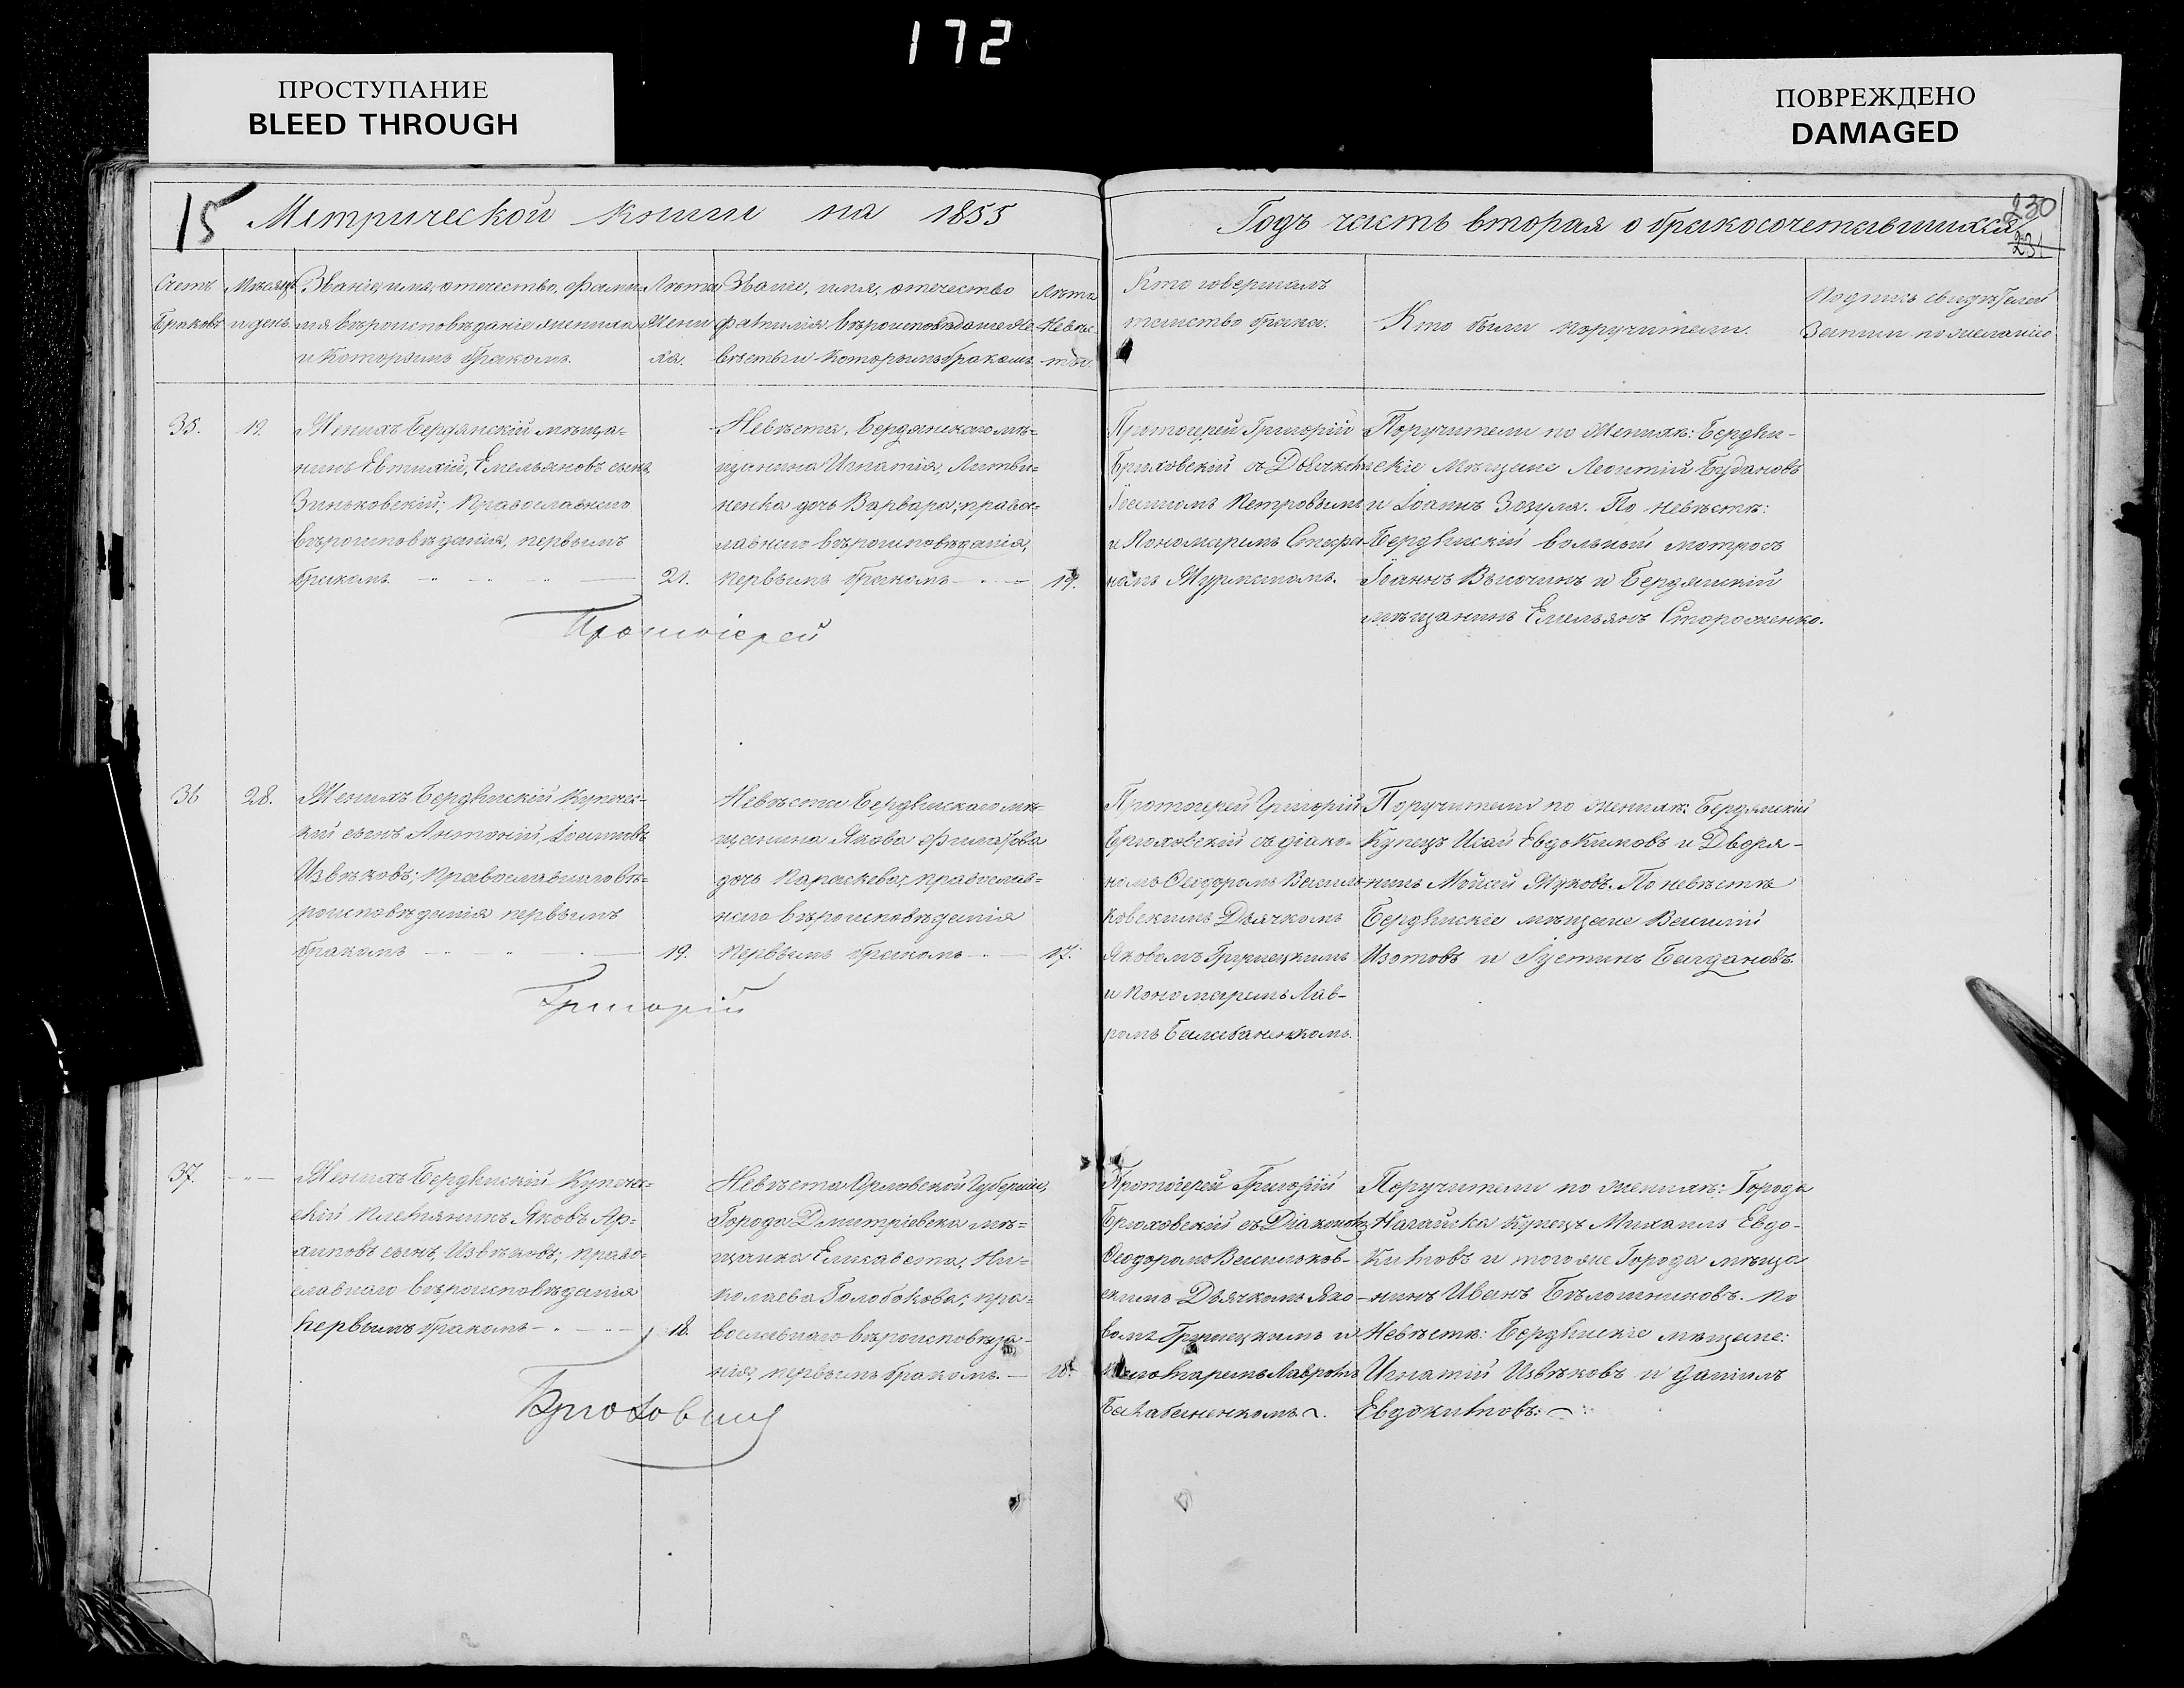 172
ПРОСТУПАНИЕ
BLEED THROUGH
ПОВРЕЖДЕНО
DAMAGED
15 Метрической книги на 1855
Годъ часть вторая о бракосочетавшихся
230
231
Счетъ
Браковъ
Мѣсяцъ
и день
Званіе, имя, отечество, фами-
лія вѣроисповѣданіе жениха
и которымъ бракомъ.
Лѣта
Жени
ха.
Званіе, имя, отечество
фамилія вѣроисповѣданіе Не-
вѣсты и которымъ бракомъ
Лѣта
Невѣс-
ты.
Кто совершалъ
таинство брака.
Кто были поручители.
Подпись свидѣтелей
Записи по желанію
35.
19.
Женихъ Бердянскій мѣща-
нинъ Евтихій, Емельяновъ сынъ
Зиньковскій; Православнаго
вѣроисповѣданія, первымъ
бракомъ
21.
Невѣста, Бердянскаго мѣ-
щанина Игнатія, Литви-
ненка дочь Варвара; право-
лавнаго вѣроисповѣданія,
первымъ бракомъ
19.
Протоіерей Григорій
Брюховскій съ Дьячкомъ
Іоанномъ Петровымъ
и Пономаремъ Стефа-
номъ
Поручители по Женихѣ: Бердян-
скіе Мѣщане Леонтій Будановъ
и Іоаннъ Зозуля. По невѣстѣ:
Бердянскій вольный матросъ
Іоаннъ и Бердянскій
мѣщанинъ Емельянъ Стороженко.
Протоіерей
36
28.
Женихъ Бердянскій Купечес-
кій сынъ Антоній, Іоанновъ
Извѣковъ; православнаго вѣ-
роисповѣданія первымъ
бракомъ
19.
Невѣста Бердянскаго мѣ-
щанина Якова Филатова
дочь Параскева; православ-
наго вѣроисповѣданія
первымъ бракомъ
17.
Протоіерей Григорій
Брюховскій съ діако-
номъ Ѳеодоромъ Василь-
ковскимъ Дьячкомъ
Яковомъ Грушецкимъ
и Пономаремъ Лав-
ромъ Балабаненкомъ.
Поручители по женихѣ: Бердянскій
Купецъ Исай Евдокимовъ и Дворя-
нинъ Мойсей Жуковъ. По невѣстѣ
Бердянскіе мѣщане Василій
Изотовъ и Іустинъ Багдановъ.
Григорій
37.
Женихъ Бердянскій Купече-
скій племянникъ Яковъ Ар-
хиповъ сынъ, Извѣковъ; право-
славнаго вѣроисповѣданія
первымъ бракомъ
18.
Невѣста Орловской Губерніи,
Города Дмитріевска мѣ-
щанка Елисавета, Ни-
колаева Голобокова; пра-
вославнаго вѣроисповѣда-
нія, первымъ бракомъ.
Протоіерей Григорій
Брюховскій съ Діакономъ
Ѳеодоромъ Васильков-
скимъ Дьячкомъ Яко-
вомъ Грушецкимъ и
Пономаремъ Лавромъ
Балабаненкомъ.
Поручители по женихѣ: Города
Нагайска Купецъ Михаилъ Евдо-
кимовъ и того же Города мѣща
нинъ Иванъ Бѣлошниковъ. По
Невѣстѣ: Бердянскіе мѣщане:
Игнатій Извѣковъ и Даніилъ
Евдокимовъ.
Брюховскій